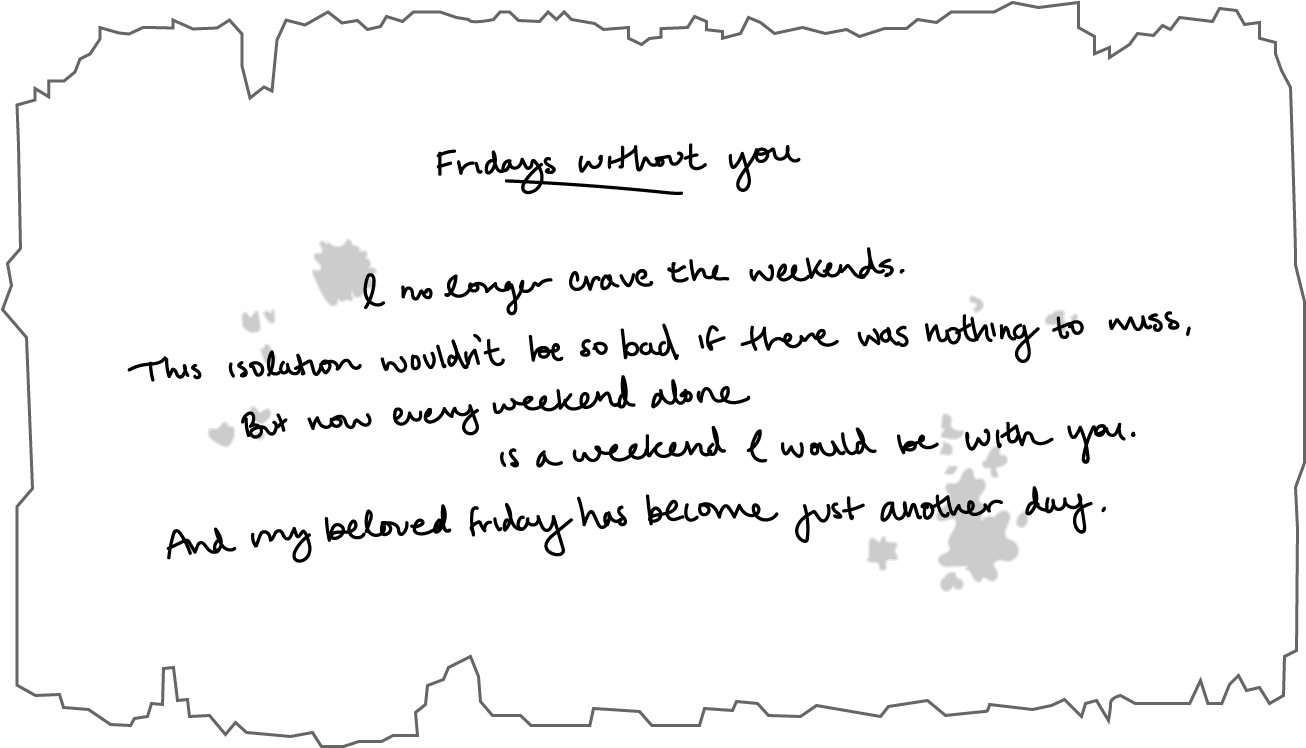 Fridays without you
I no longer crave the weekends.
This isolation wouldn't be so bad if there was nothing to miss,
But now every weekend alone
is a weekend I would be with you.
And my beloved Friday has become just another day.